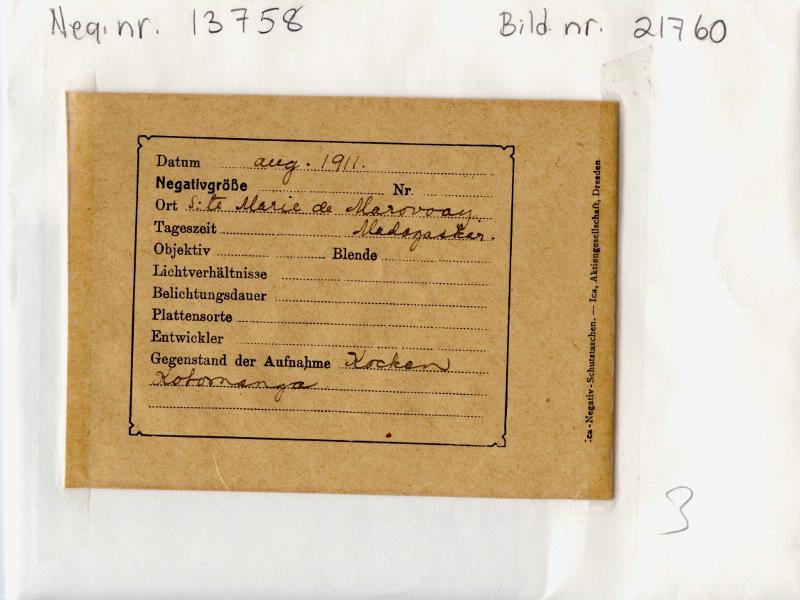 Neg. nr. 13758 Bild. nr. 21760
Datum aug. 1911.
Negativgröße Nr.
Ort S:te Marie de Marovoay
Tageszeit Madagaskar.
Objektiv Blende
Lichtverhältnisse
Belichtungsdauer
Plattensorte
Entwickler
Gegenstand der Aufnahme Kocken
Kotomanga
Ica-Negativ-Schutztaschen. — Ica, Aktiengesellschaft, Dresden
3